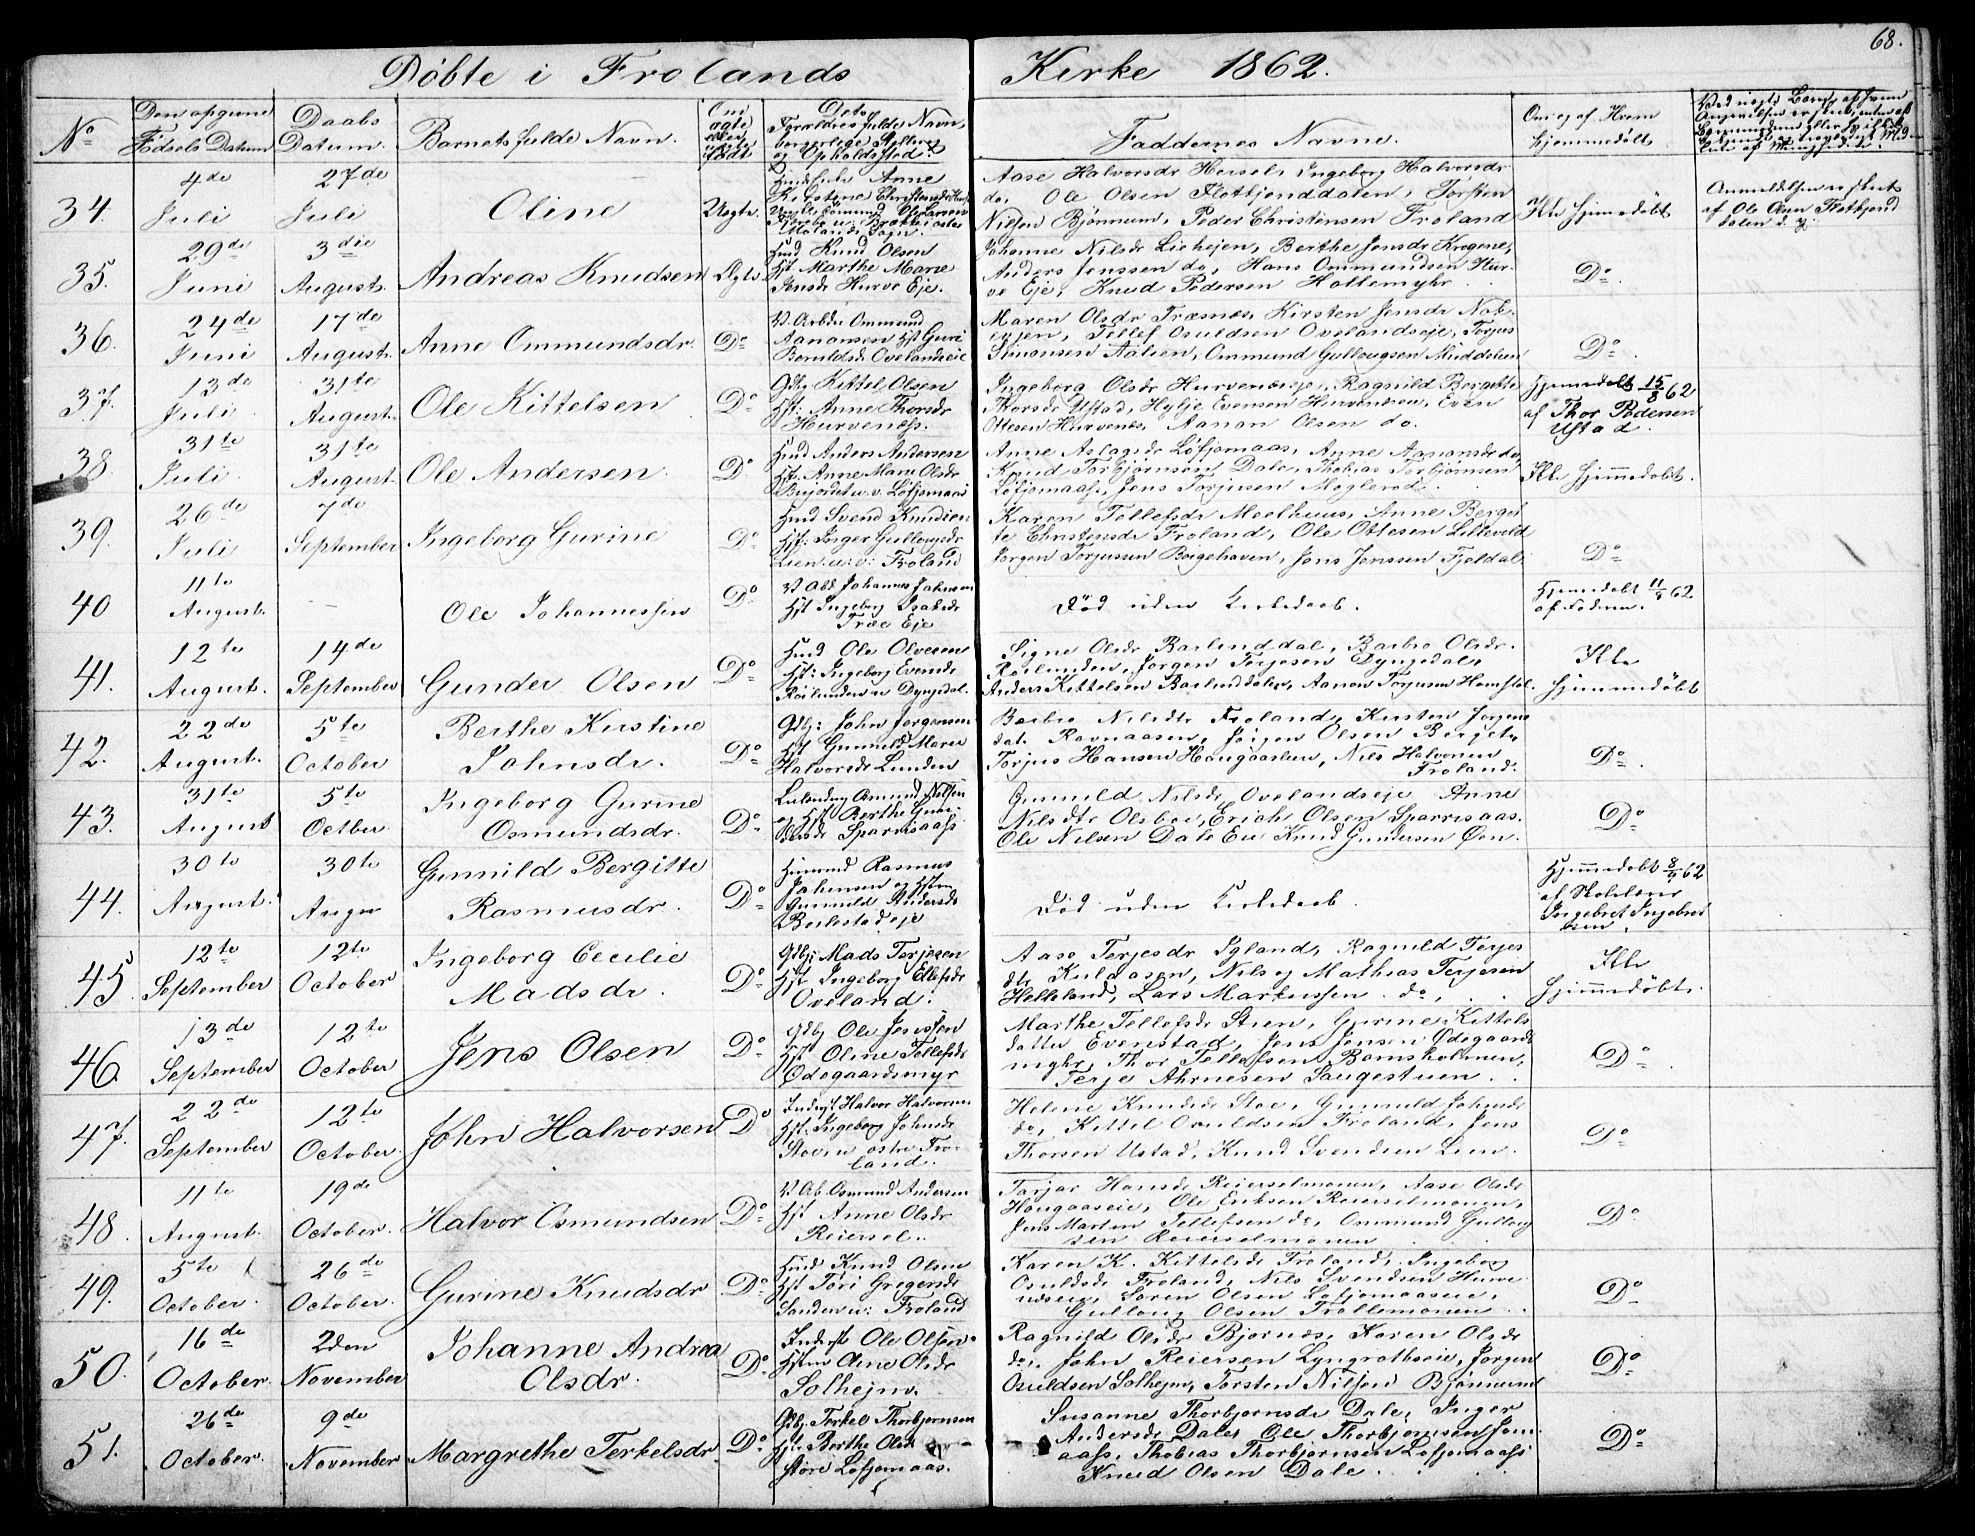 68.
Døbte i Frolands Kirke 1862.
No
Den opgivne Fødsels Datum
Daabs Datum.
Barnets fulde Navn.
Om ægte eller uægte født
Dets Forældres fulde Navn, borgerlige Stilling og Opholdssted.
Faddernes Navne.
Om og af Hvem hjemmedøbt.
34.
4de Juli
27de Juli
Oline
Uægte.
Anne Kirstine
Ole Larsen
Aase Halvorsdr Heisel, Ingeborg Halvorsdr
do, Ole Olsen Flotkjenddalen, Torsten
Nielsen Bjønnum, Peder Christensen Froland
Ikke hjemmedøbt
Anmeldelsen er skeet
af Ole Olsen Flotkjend
dalen
35.
29de Juni
3die August.
Andreas Knudsen
Ægte.
Knud Olsen
Hst Marthe Marie
Jensdr Hurve Eje.
Johanne Nilsdr, Berthe Jensdr Krogene,
Anders Jenssen do, Hans Ommundsen Hur-
ve Eje, Knud Pedersen Hollemyhr
Do
36.
24de Juni
17de August.
Anne Ommundsdr.
Do
Ommund
Aanonsen Hst Guri
Berulds Ovelandseie
Maren Olsdr Træsnæs, Kirsten Jensdr
Tellef Osuldsen Ovelandseje, Torjus
Simonsen Aalien, Ommund Gullougsen
Do.
37.
13de Juli
31te August.
Ole Kittelsen
Do
Gdbr Kittel Olsen
Hst: Anne Thorsdr
Hurvenæss.
Ingeborg Olsdr, Ragnild Bergitte
Thorsdr Ustad, Hylje Evensen Hurvenæsen, Even
Ottesen Hurvenæs, Aanon Olsen do.
Hjemmedøbt 15/8 62
af Thor Pedersen
Ustad.
38.
31te Juli
31te August.
Ole Andersen
Do
Anders Andersen
Hst: Anne Marie Olsdr
Løfjomaas
Anne Aslagsdr Løfjomaas, Anne Aanonsdr do,
Knud Torbjørnsen Dale, Thobias Torbjørnsen
Løfjomaas, Jens Torjusen Moglerød
Ikke hjemmedøbt.
39
26de Juli
7de September
Ingeborg Gurine
Do
Svend Knudsen
Hst: Inger Gullougsdr
Lien u: v: Froland
Karen Tellefsdr Moelhuus, Anne Berget
te Christensdr Froland, Ole Ottesen Lilleveld
Jørgen Torjussen Bøigehaven, Jens Jenssen Fjeldal.
Do
40
11te August.
Ole Johannessen
Do
Johannes Johnsen
Hst Ingeborg
Træe Eje
Død uden Kirkedaab.
Hjemmedøbt 11/8 62
af Faderen.
41.
12te August.
14de September
Gunder Olsen
Do
Ole Olvesen
Hst: Ingeborg Evensdr
Røilunden u Dyngedal.
Signe Olsdr Barlinddal, Barbro Olsdr.
Røilunden, Jørgen Terjesen Dyngedal,
Anders Kittelsen Barlinddalen, Aanon Torjusen
Ikke
hjemmedøbt
42.
22de August.
5te October
Berthe Kirstine
Johnsdr.
Do
Gdbr: John Jørgensen
Hst Gunnild Marie
Halvorsdr Lunden
Barbro Nilsdtr Froland, Kirsten Jørgens
datr Ravnaasen, Jørgen Olsen Berget,
Torjus Hansen Haugaaslien, Nils Halvorsen
Froland.
Do.
43.
31te August
5te Octber.
Ingeborg Gurine
Osmundsdr.
Do
Osmund Nilsen
og Hst Berthe
Sparrisaass
Gunnild Nilsdr Ovelandseje Anne
Nilsdtr Olsbo, Erich Olsen Sparrisaas.
Ole Nilsen Dale Eie Knud Gundersen
Do
44.
30te August.
30te Augu
Gunnild Bergitte
Rasmusdr.
Do
Rasmus
Johensen og Hstru
Gunnuld Andersdr
Beilestad eje
Død uden Kirkedaab.
Hjemmedøbt 8/9 62
af Skolelærer
Ingebret Ingebret
sen.
45.
12te September
12te October
Ingeborg Cecilie
Madsdr.
Do
Gdbr: Mads Terjesen
Hst Ingeborg Ellefsdr
Oveland.
Aase Terjesdr Igland, Ragnild Terjes
dtr, Nils og Mathias Terjesen
Helleland, Lars Markussen do,
Ikke
hjemmedøbt.
46.
13de September
12te October
Jens Olsen
Do
Gdbr Ole Jenssen
Hst Oline Tellefsdr
Ødegaardsmyr
Marthe Tellefsdr Stien, Gurine Kittels
datter Evenstad, Jens Jensen Ødegaards
myhr, Thor Tellefsen Bomsholmen,
Terje Ahrnesen Saugestuen
Do
47.
22de September
12te October.
John Halvorsen
Do
Inderst Halvor Halvorsen
Hst: Ingeborg Johnsdr
Stoen u østre Fro-
land.
Helene Knudsdr Stoe, Gunnild Johnsdr
do, Kittel Osuldsen Froland, Jens
Thorsen Ustad, Knud Svendsen Lien.
Do
48.
11te August.
19de October.
Halvor Osmundsen
Do
Osmund Andersen
Hst Anne Olsdr
Reiersel.
Tarjer Hansdr Reierselmonen, Aase Olsdr
Haugaaseie, Ole Eriksen Reierselmonen,
Jens Martin Tellefsen do, Ommund Gulloug
sen Reierselmonen
Do
49.
5te October.
26de October.
Gurine Knudsdr
Do
Knud Olsen
Hst Tori Gregersdr
Sanden u: Froland
Karen K. Kittelsdr Froland, Ingeborg
Osuldsdr Froland, Nils Svendsen Hurve
næseie, Søren Olsen Løfjomaaseie,
Gulloug Olsen Trollemonen
Do
50.
16de October.
2den November
Johanne Andrea
Olsdr.
Do
Inderst Ole Olsen
Hstru Oline Olsdr
Solhejm.
Ragnild Olsdr Bjørnæs, Karen Olsdr
do, John Reiersen Lyngrothseie, Jørgen
Osuldsen Solhejm, Torsten Nilsen Bjønnum
Do
51.
26de October.
9de November
Margrethe Terkelsdr
Do
Gdbr. Terkel Thorbjørnsen
Hst. Berthe Olsdr
støre Løfjomaas.
Susanne Thorbjørnsdr Dale, Inger
Andersdr Dale, Ole Thorbjørnsen
Thobias Thorbjørnsen Løfjomaass
Knud Olsen Dale.
Do